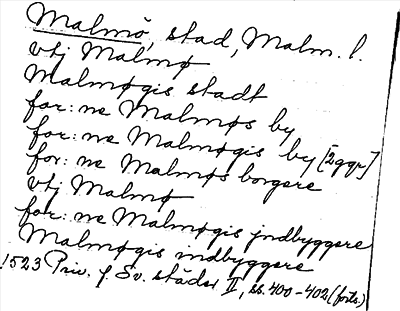 Malmö, stad, Malm. l.
vtj Malmø
Malmøgis stadt
for: ne Malmøs by
for: ne Malmøgis by [2 ggr]
for: ne Malmøs borgere
vtj Malmø
for: ne Malmøgis jndbyggere
Malmøgis indbyggere
1523 Priv. f. Sv. städer II, ss. 400-402 (forts.)